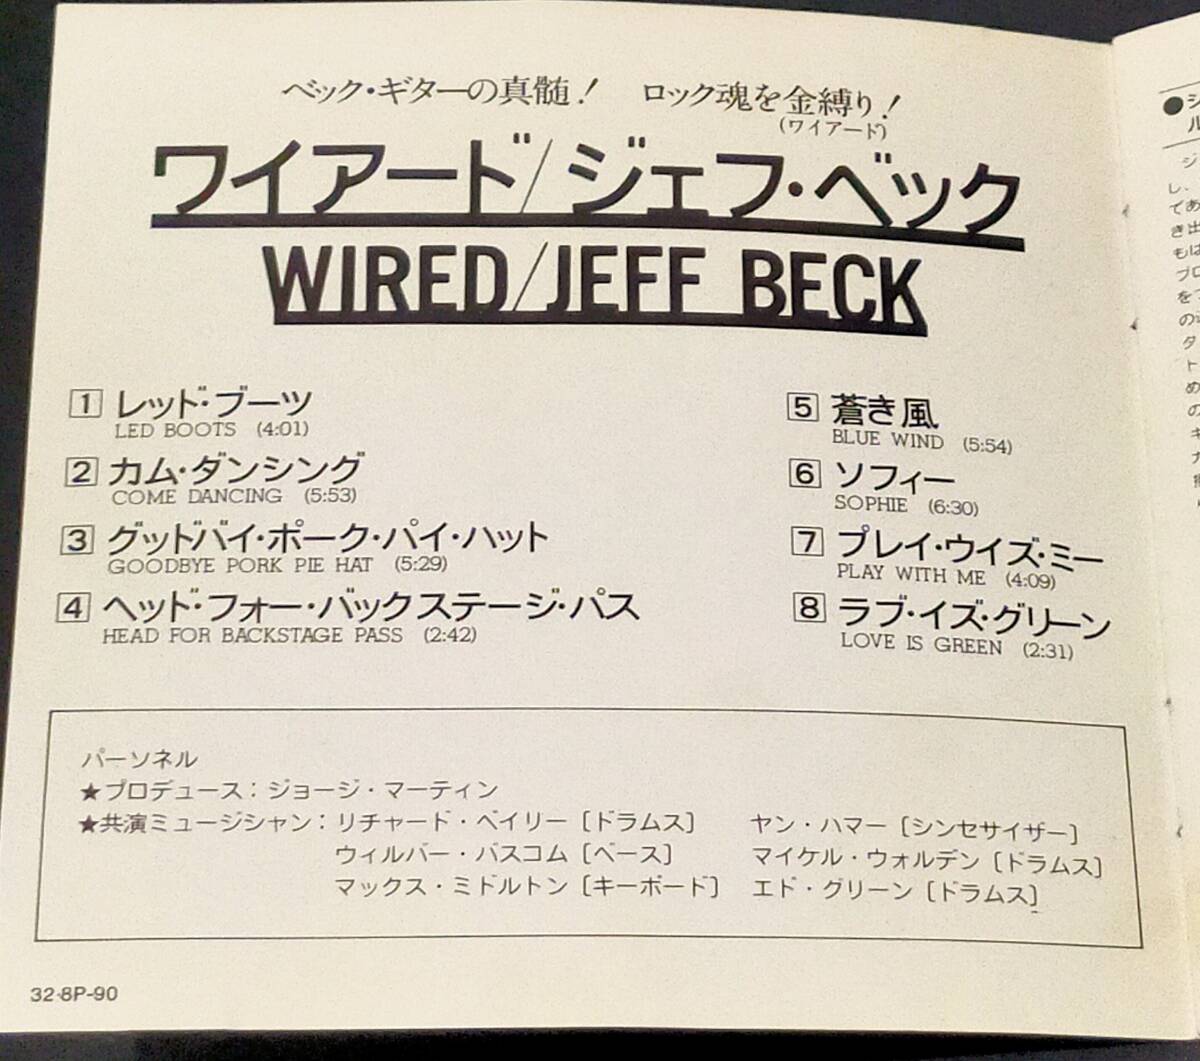 ベック・ギターの真髄! ロック魂を金縛り!
(ワイアード)
ワイアード/ジェフ・ベック
WIRED/JEFF BECK
1 レッド・ブーツ
LED BOOTS (4:01)
2 カム・ダンシング
COME DANCING (5:53)
3 グッドバイ・ポーク・パイ・ハット
GOODBYE PORK PIE HAT (5:29)
4 ヘッド・フォー・バックステージ・パス
HEAD FOR BACKSTAGE PASS (2:42)
5 蒼き風
BLUE WIND (5:54)
6 ソフィー
SOPHIE (6:30)
7 プレイ・ウイズ・ミー
PLAY WITH ME (4:09)
8 ラブ・イズ・グリーン
LOVE IS GREEN (2:31)
パーソネル
★プロデュース:ジョージ・マーティン
★共演ミュージシャン:リチャード・ベイリー〔ドラムス〕 ヤン・ハマー〔シンセサイザー〕
ウィルバー・バスコム〔ベース〕 マイケル・ウォルデン〔ドラムス〕
マックス・ミドルトン〔キーボード〕 エド・グリーン〔ドラムス〕
32・8P-90
●ジ
ル
ジ
し、
であ
き出
もは
プロ
をつ
の
タ
ト
め
の